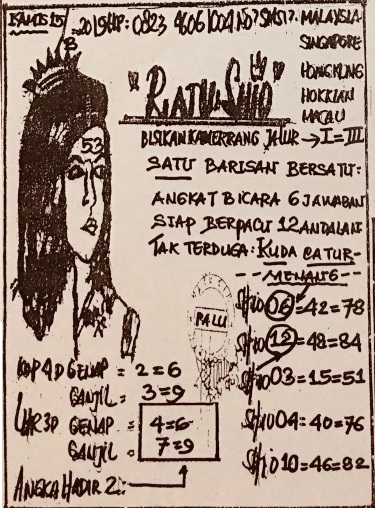 KAMIS 15
2019 HP: 0823 4606 1004 No? SMS!?
MALAYSIA
SINGAPORE
HONGKONG
HOKKIAN
MACAU
B
"RATU SHIO"
53
BISIKAN KAMERRANG JALUR → I = III
SATU BARISAN BERSATU:
ANGKAT BICARA 6 JAWABAN
SIAP BERPACU 12 ANDALAN
TAK TERDUGA: KUDA CATUR-
--MENANG--
PALU
SHIO 06=42=78
SHIO 12=48=84
SHIO 03=15=51
SHIO 04=40=76
SHIO 10=46=82
KOP 4D GENAP = 2=6
GANJIL = 3=9
LHR 3D GENAP = 4=6
GANJIL = 7=9
ANGKA HADIR 2: